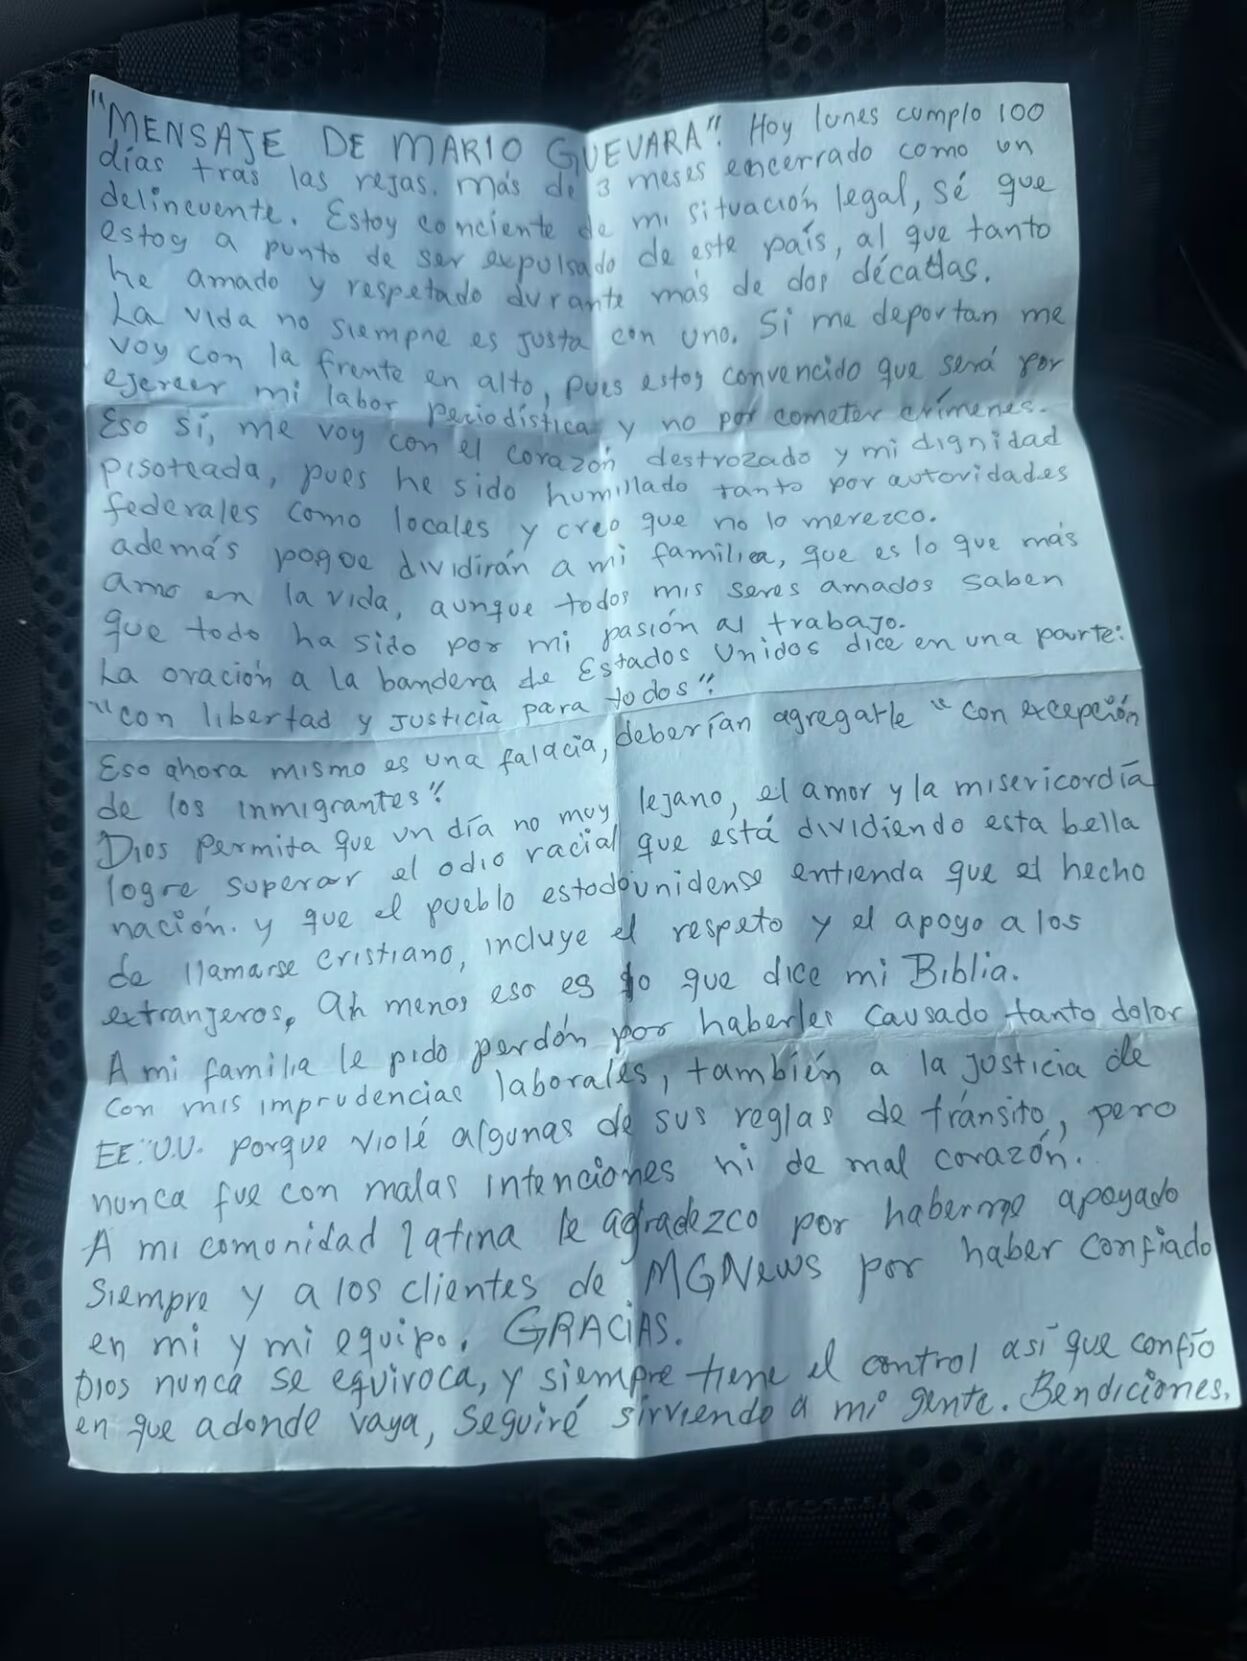 "MENSAJE DE MARIO GUEVARA". Hoy lunes cumplo 100
días tras las rejas. más de 3 meses encerrado como un
delincuente. Estoy conciente de mi situación legal, sé que
estoy a punto de ser expulsado de este país, al que tanto
he amado y respetado durante más de dos décadas.
La vida no siempre es justa con uno. Si me deportan me
voy con la frente en alto, pues estoy convencido que será por
ejercer mi labor periodística y no por cometer crímenes.
Eso sí, me voy con el corazón destrozado y mi dignidad
pisoteada, pues he sido humillado tanto por autoridades
federales como locales y creo que no lo merezco.
además poque dividirán a mi familia, que es lo que más
amo en la vida, aunque todos mis seres amados saben
que todo ha sido por mi pasión al trabajo.
La oración a la bandera de Estados Unidos dice en una parte:
"con libertad y justicia para todos".
Eso ahora mismo es una falacia, deberían agregarle "con excepción
de los inmigrantes".
Dios permita que un día no muy lejano, el amor y la misericordía
logre superar el odio racial que está dividiendo esta bella
nación. y que el pueblo estadounidense entienda que el hecho
de llamarse cristiano, incluye el respeto y el apoyo a los
extranjeros, Al menos eso es lo que dice mi Biblia.
A mi familia le pido perdón por haberles causado tanto dolor
con mis imprudencias laborales, también a la justicia de
EE.UU. porque violé algunas de sus reglas de tránsito, pero
nunca fue con malas intenciones ni de mal corazón.
A mi comunidad latina le agradezco por haberme apoyado
siempre y a los clientes de MGNews por haber confiado
en mi y mi equipo. GRACIAS.
Dios nunca se equivoca, y siempre tiene el control así que confío
en que adonde vaya, seguiré sirviendo a mi gente. Bendiciones.